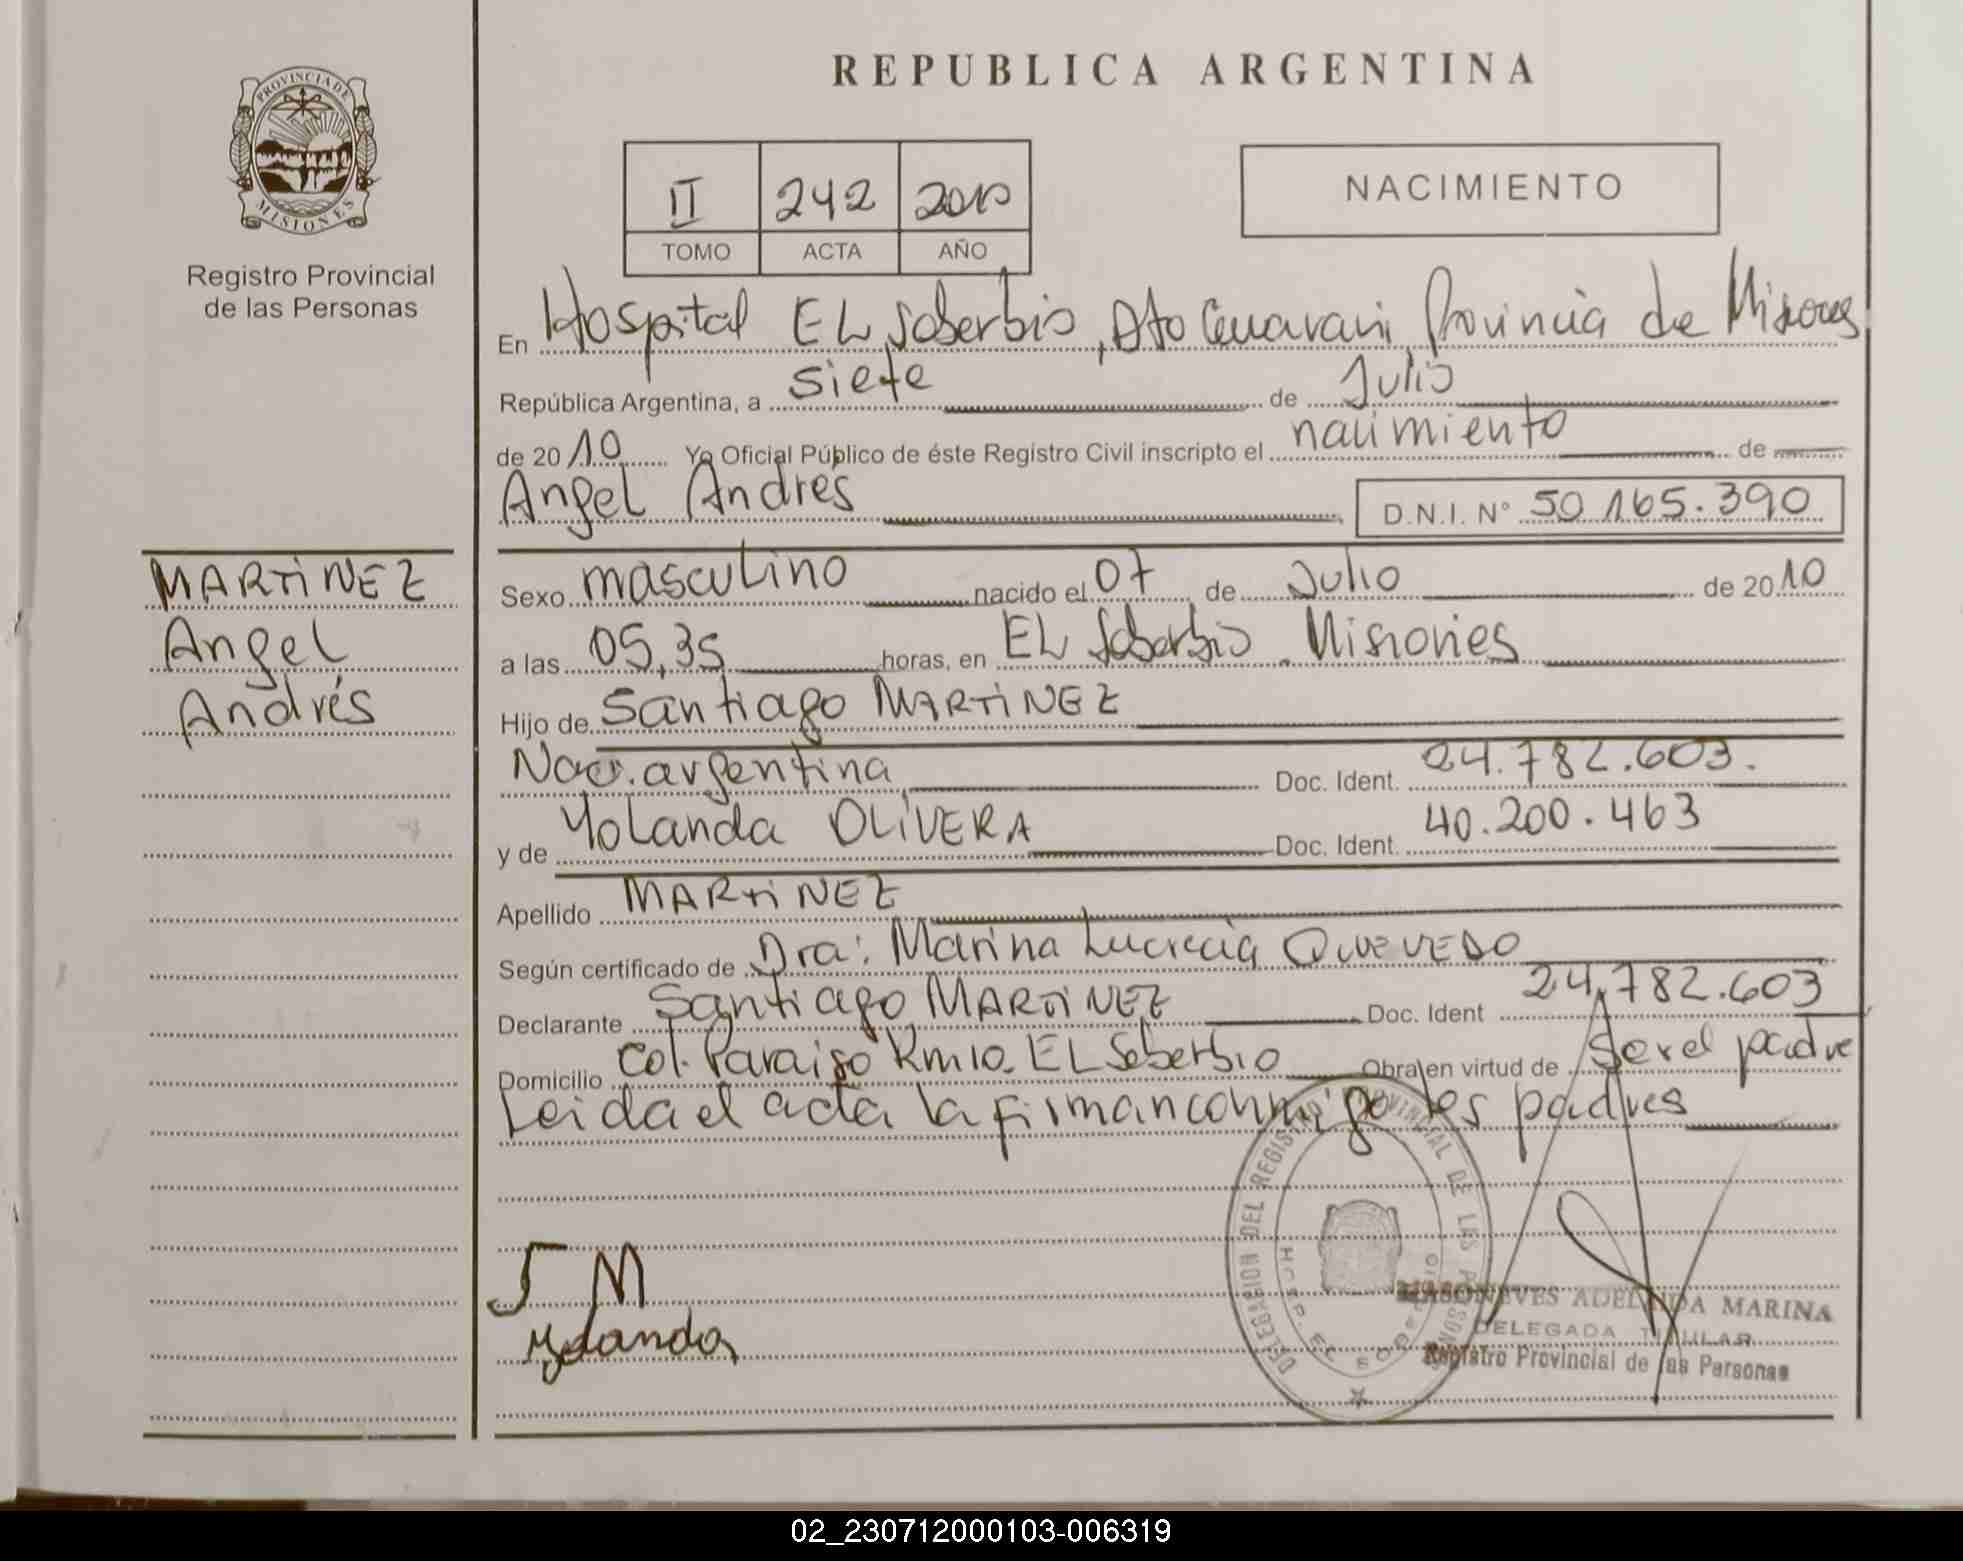 REPUBLICA ARGENTINA
PROVINCIA DE
MISIONES
Registro Provincial
de las Personas
II 242 2010
TOMO ACTA AÑO
NACIMIENTO
En Hospital EL Soberbio, Dto Guaraní, Provincia de Misiones
República Argentina, a siete de Julio
de 2010 Yo Oficial Público de éste Registro Civil inscripto el nacimiento de
Angel Andrés D.N.I. N° 50.165.390
MARTINEZ
Angel
Andrés
Sexo masculino nacido el 07 de Julio de 2010
a las 05,35 horas, en EL Soberbio. Misiones
Hijo de Santiago MARTINEZ
Nac. argentina Doc. Ident. 24.782.603.
y de Yolanda OLIVERA Doc. Ident. 40.200.463
Apellido MARTINEZ
Según certificado de Dra: Marina Lucrecia QUEVEDO
Declarante Santiago MARTINEZ Doc. Ident 24.782.603
Domicilio Col. Paraiso Km 10. EL Soberbio Obra en virtud de Ser el padre
Leida el acta la firman conmigo los padres
DELEGACION DEL REGISTRO PROVINCIAL DE LAS PERSONAS
HOSP. EL SOBERBIO
S M
Yolanda
ADELINDA MARINA
DELEGADA TITULAR
Registro Provincial de las Personas
02_230712000103-006319